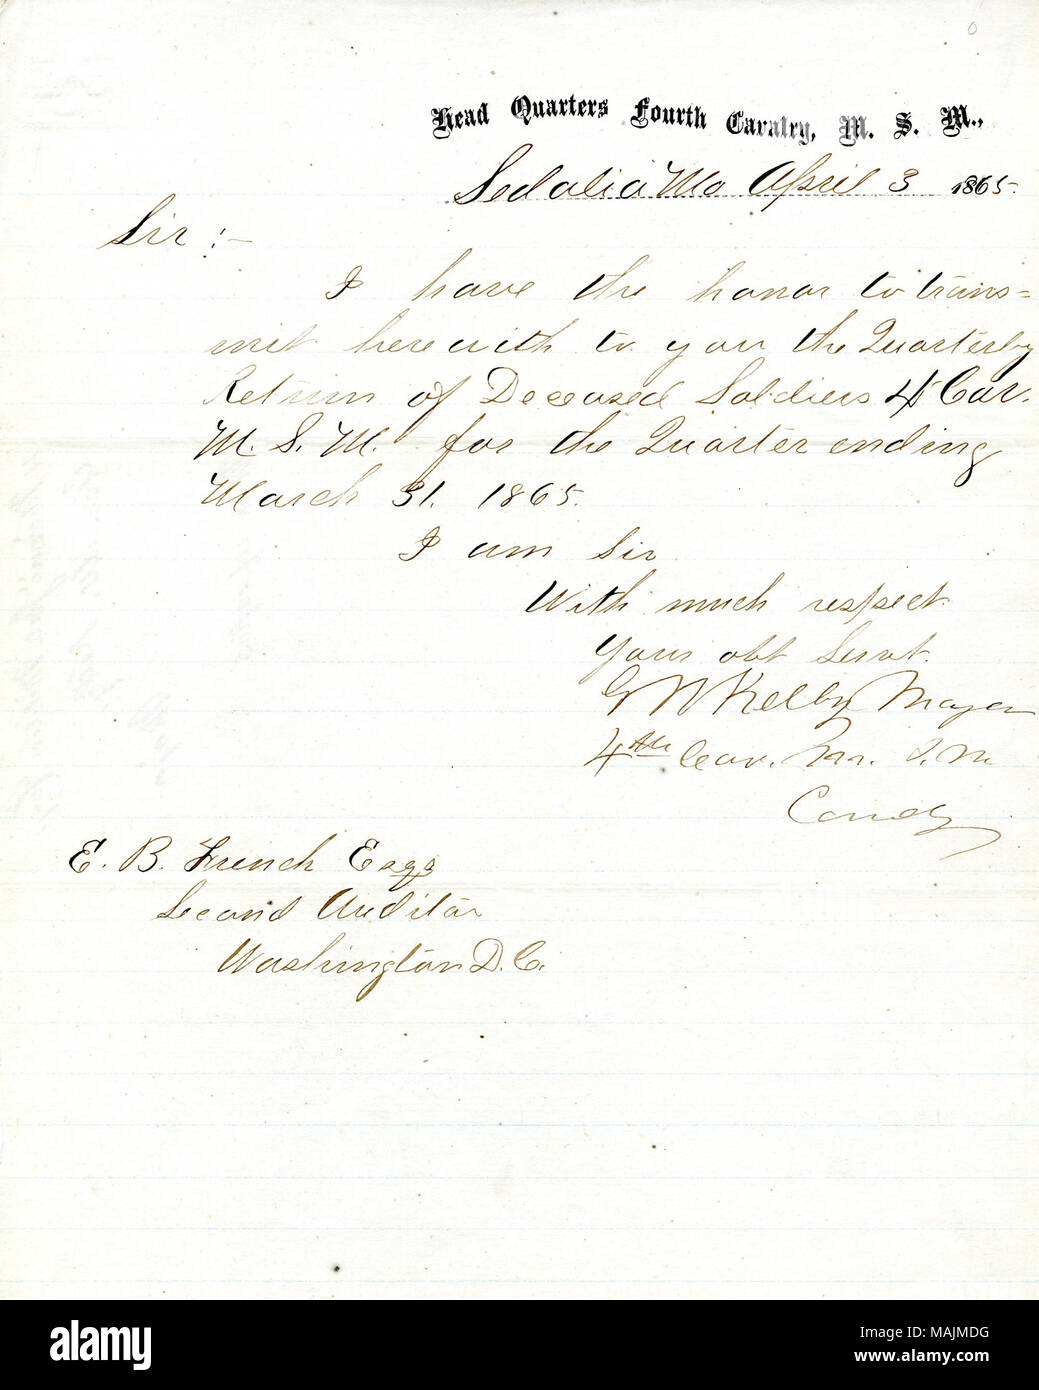 Head Quarters Fourth Cavalry, M. S. M.,
Sedalia Mo April 3 1865
Sir :-
I have the honor to trans=
mit herewith to you the Quarterly
Return of Deceased Soldiers 4 Cav.
M. S. M. for the Quarter ending
March 31. 1865.
I am Sir
With much respect.
Your obt Servt.
G W Kelly Major
4th Cav. M. S. M
Comdg
E. B. French Esqr
Second Auditor
Washington D. C.
alamy
Image ID: MAJMDG
www.alamy.com